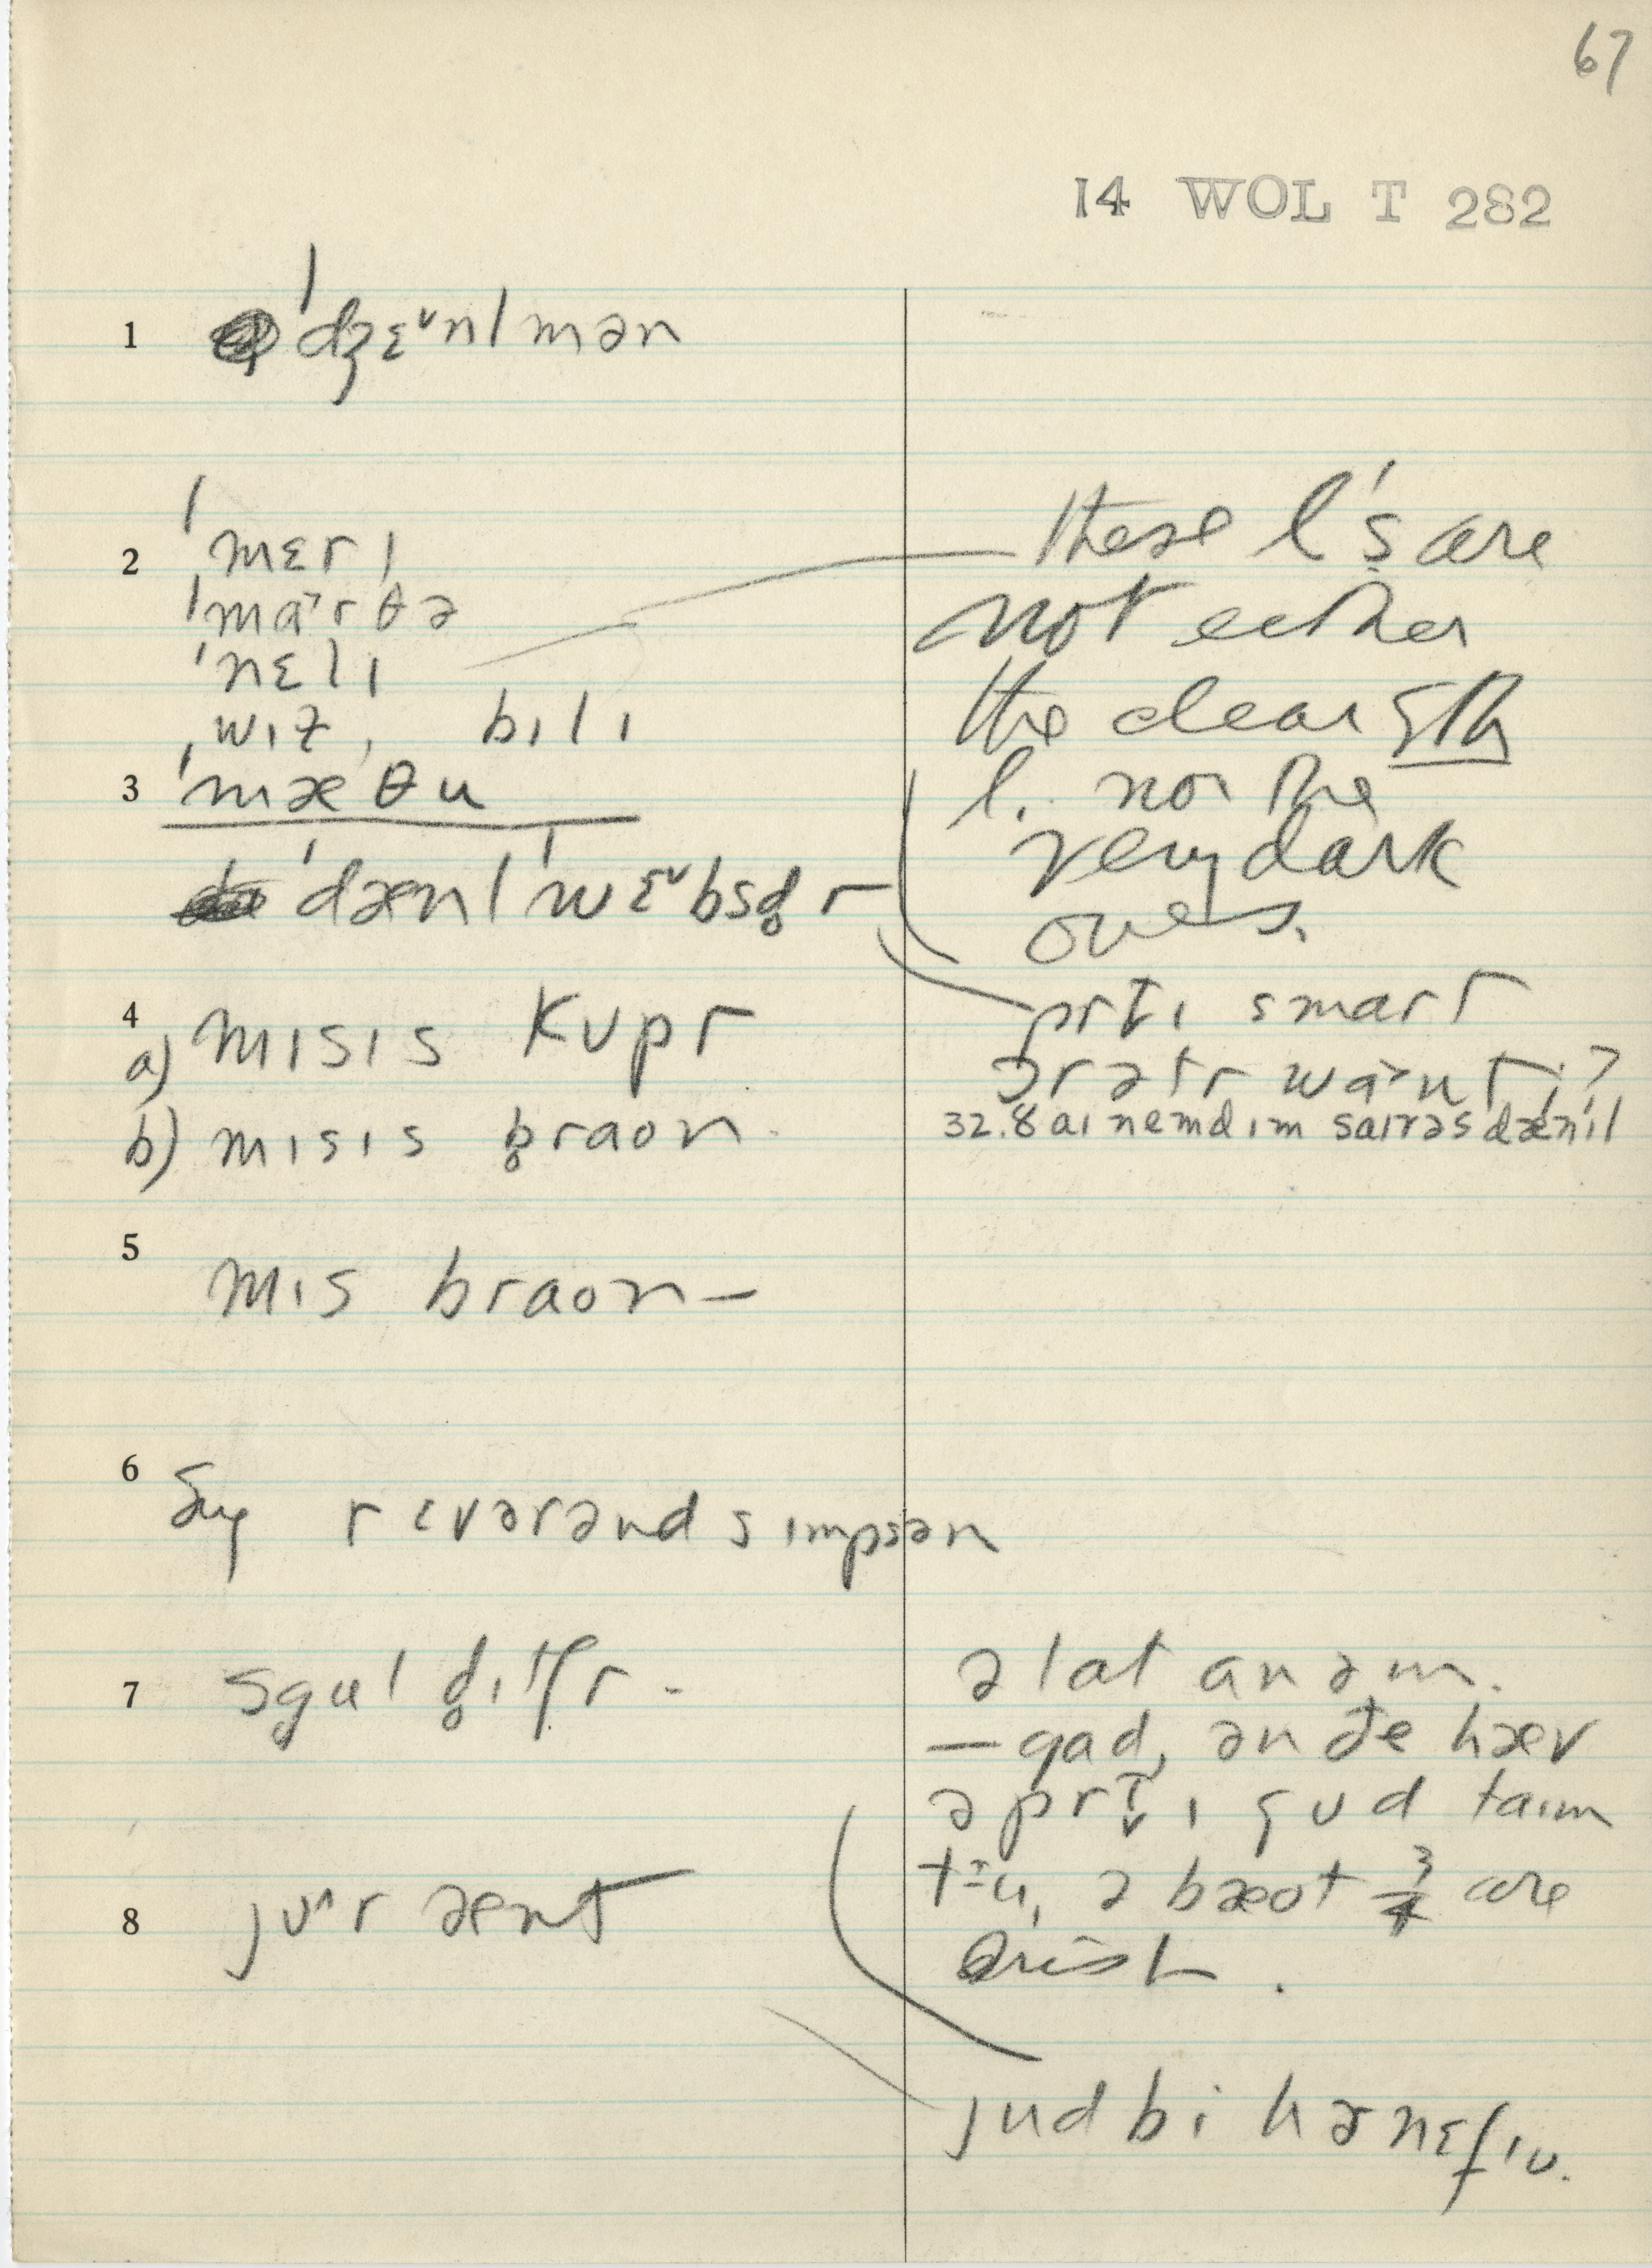 67
14 WOL T 282
1 ˈdʒɛ˅nlmən
2 ˈmɛrɪ
ˈma˃rθə
ˈnɛlɪ
ˌwɪɫ, bɪlɪ
3 ˈmæθu
ˈdænlˈwɛ˅bsd̥r
4
a) mɪsɪs kʊpr
b) mɪsɪs b̥raon
5 mɪs braon–
6 ðɪy rɛvərənd sɪmpsən
7 sgul d̥itʃr –
8 jʊ^r ænt
these l's are
not either
the clear sth
l. nor the
very dark
ones.
prt̬ɪ smart
ərətr wa˃nt ?
32.8 aɪ nemd ɪm saɪrəs dænɪl
ə lat an əm.
– gad, ən ðe hæv
ə prt̬ɪ gʊd taɪm
tu, əbæot 3/4 are
jud bi hənɛfɪu.